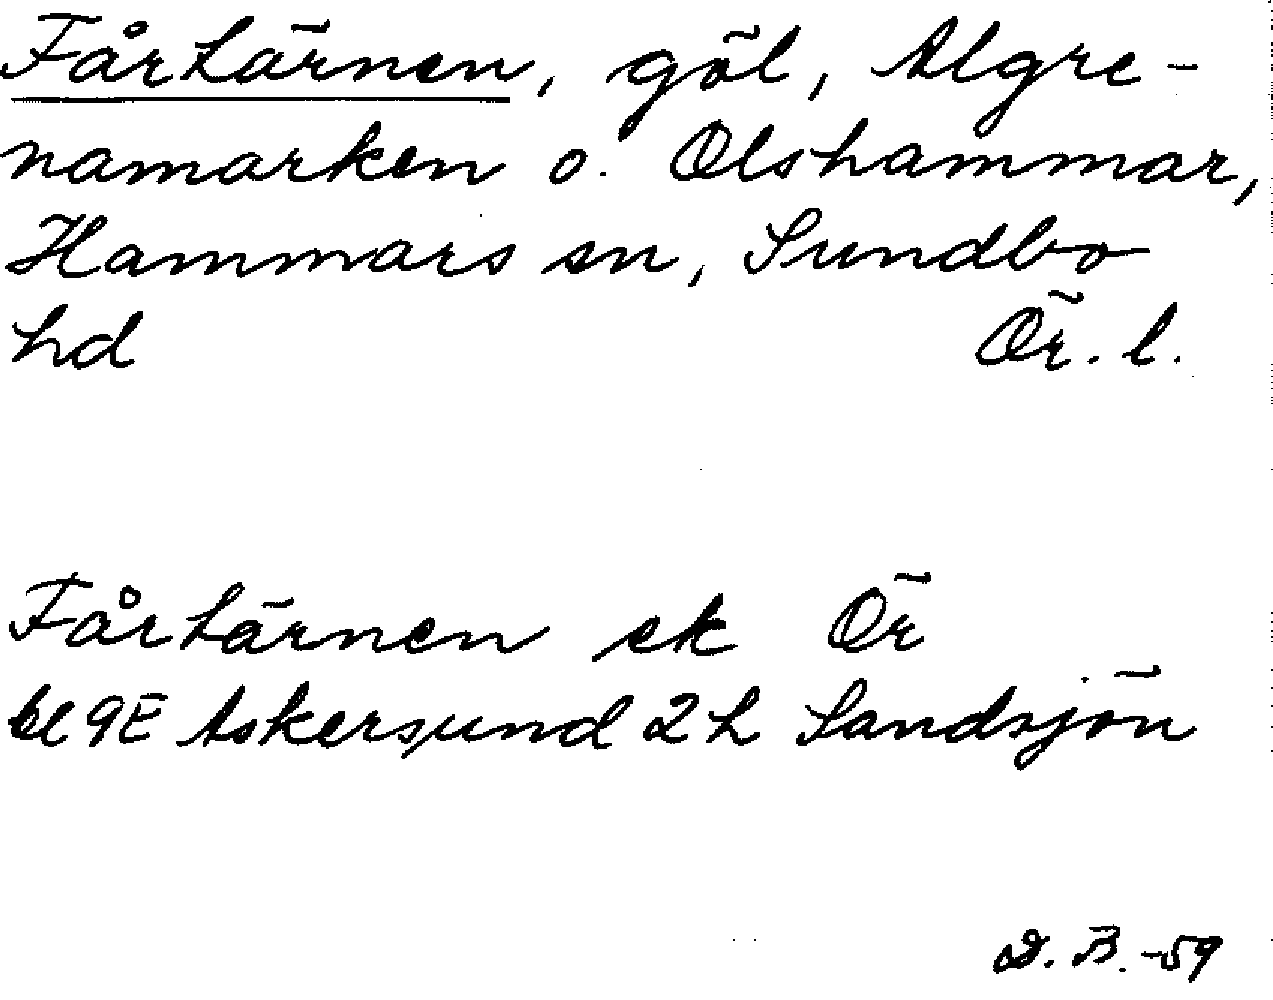 Fårtärnen, göl, Algre-
namarken o. Olshammar,
Hammars sn, Sundbo
hd Ör. l.
Fårtärnen ek Ör
bl 9E Askersund 2h Sandsjön
D. B. -59